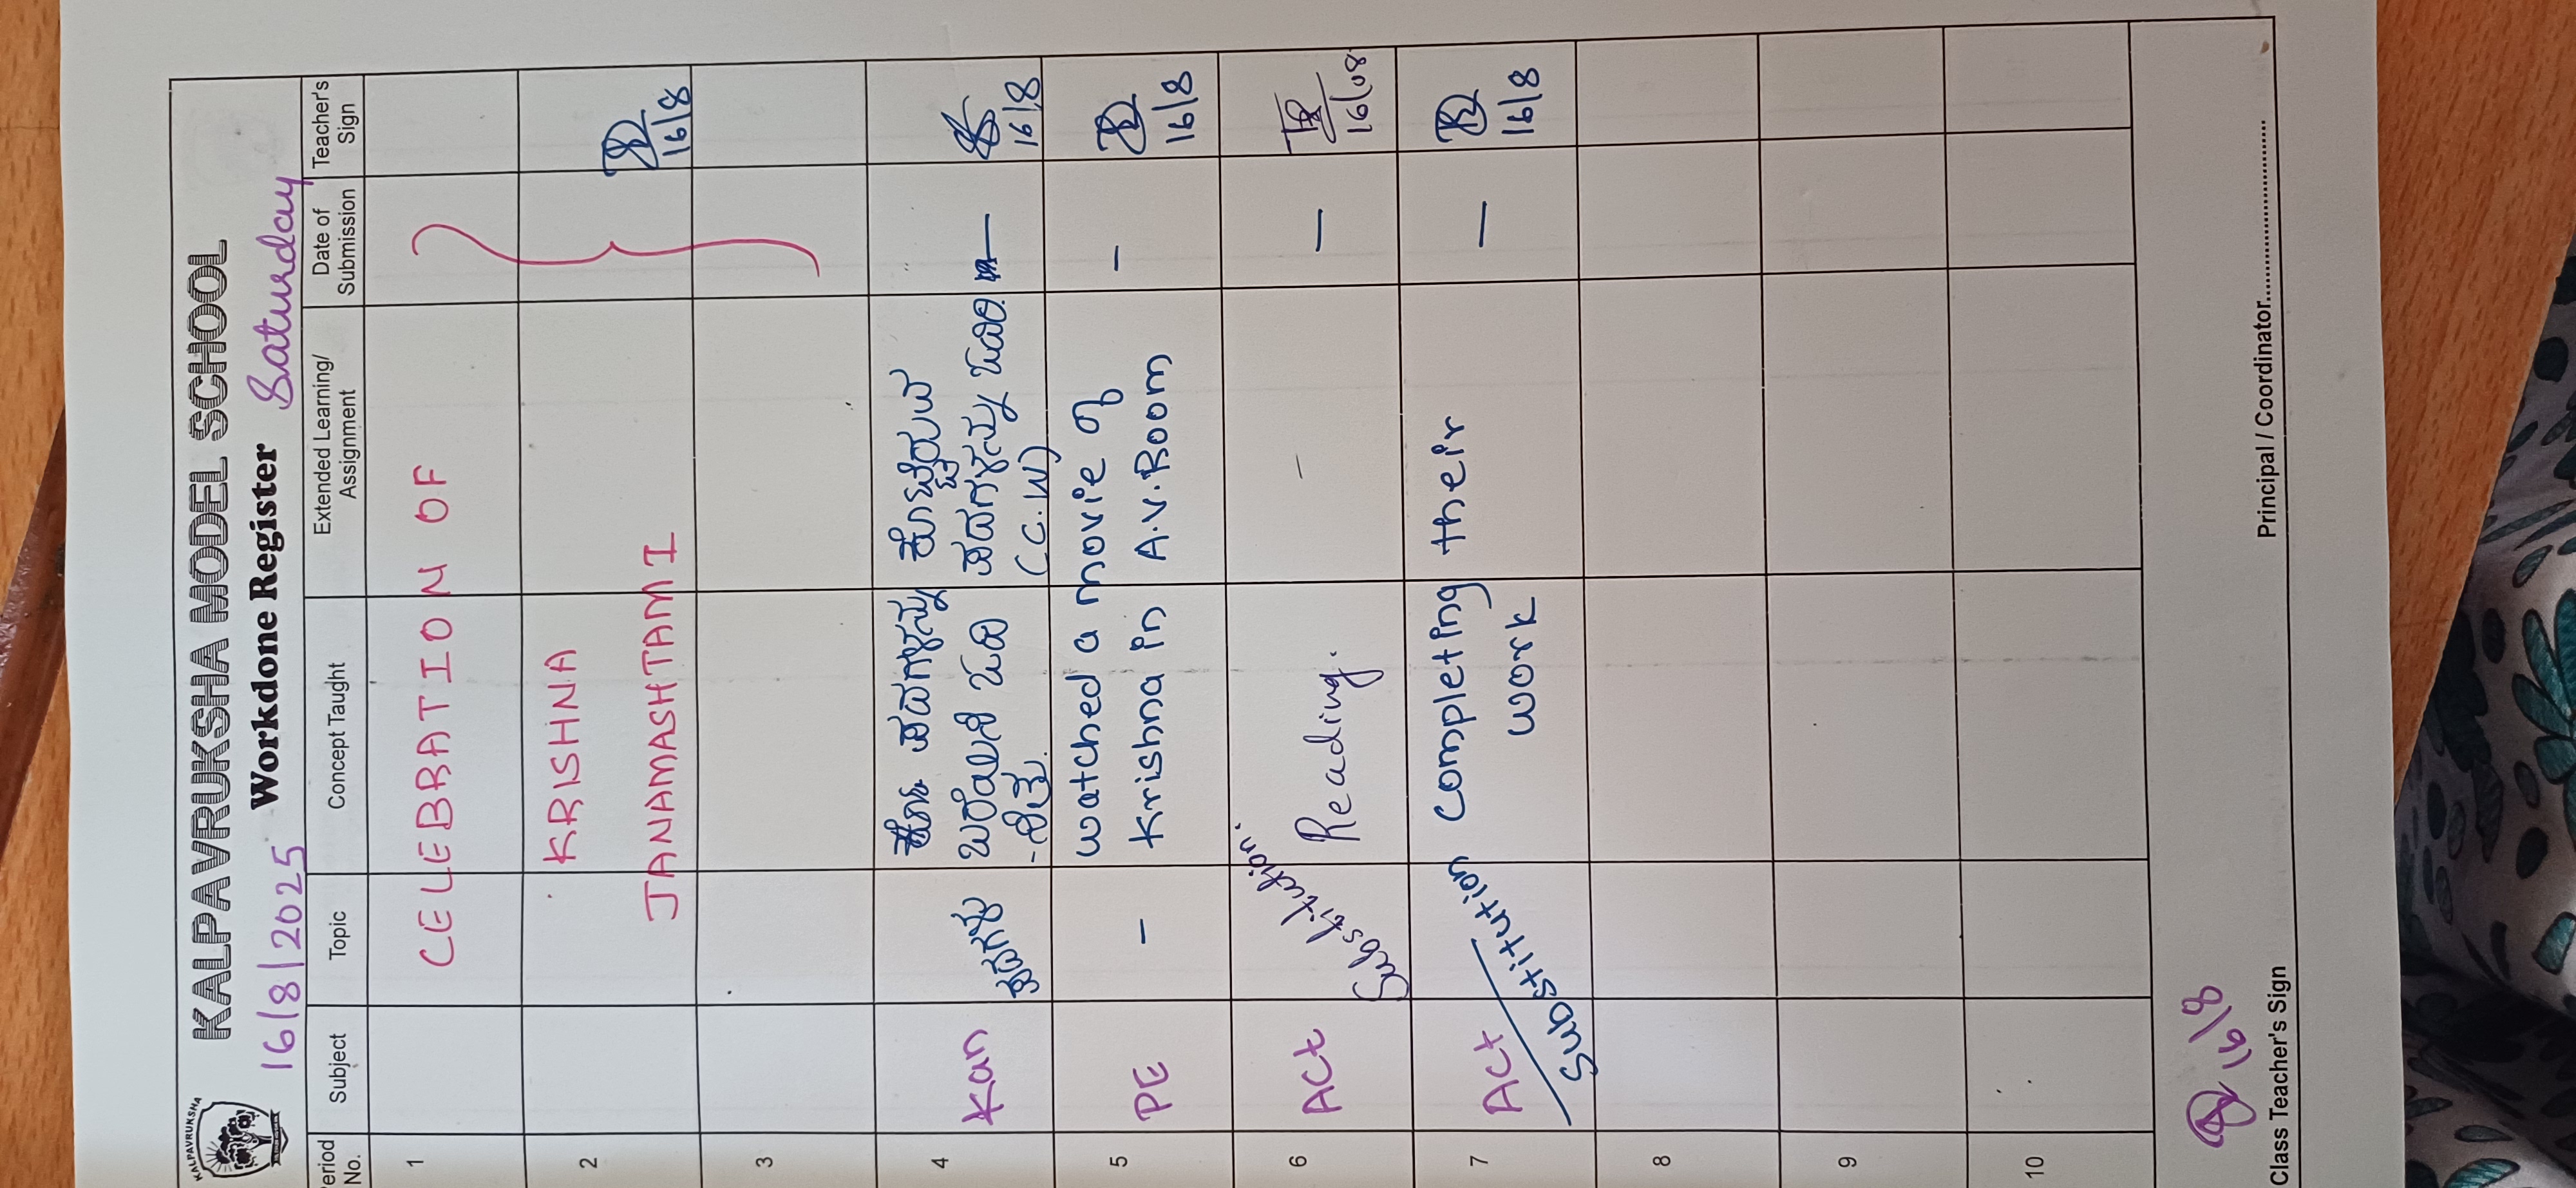 KALPAVRUKSHA
KALPAVRUKSHA MODEL SCHOOL
16/8/2025 Workdone Register Saturday
eriod No. Subject Topic Concept Taught Extended Learning/ Assignment Date of Submission Teacher's Sign
1 CELEBRATION OF
2 KRISHNA
JANAMASHTAMI 16/8
3
4 Kan ಪದಗಳು ಪದಗಳನ್ನು
ಬರೆಯಲಿ ಓದಿ
ಪದಗಳನ್ನು ಓದಿರಿ. —
(C.W) 16/8
5 PE – watched a movie of
Krishna in A.V.Room – 16/8
6 Act Substitution. Reading. – — 16/08
7 Act Substitution completing their
work — 16/8
8
9
10
16/8
Class Teacher's Sign Principal / Coordinator